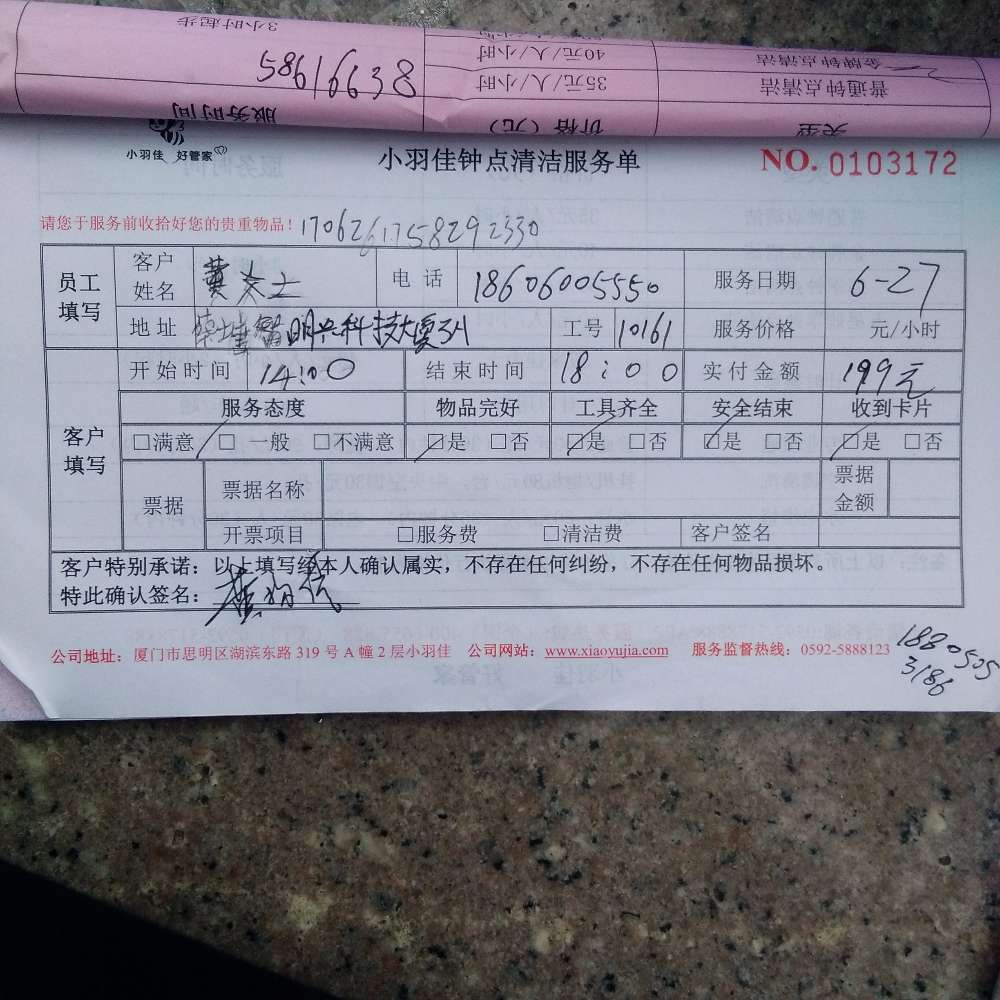 3小时起步
40元/人/小时
金牌钟点清洁
58616638
35元/人/小时
普通钟点清洁
服务时间
价格（元）
类型
小羽佳 好管家
小羽佳钟点清洁服务单
NO. 0103172
请您于服务前收拾好您的贵重物品！
员工填写 客户姓名 黄女士 电话 18606005550 服务日期 6-27
地址 明兴科技大厦 工号 10161 服务价格 元/小时
客户填写 开始时间 14:00 结束时间 18:00 实付金额 199元
服务态度 物品完好 工具齐全 安全结束 收到卡片
□满意 □一般 □不满意 □是 □否 □是 □否 □是 □否 □是 □否
票据 票据名称 票据金额
开票项目 □服务费 □清洁费 客户签名
客户特别承诺：以上填写经本人确认属实，不存在任何纠纷，不存在任何物品损坏。
特此确认签名：
公司地址：厦门市思明区湖滨东路 319 号 A 幢 2 层小羽佳 公司网站：www.xiaoyujia.com 服务监督热线：0592-5888123
1880505
3186